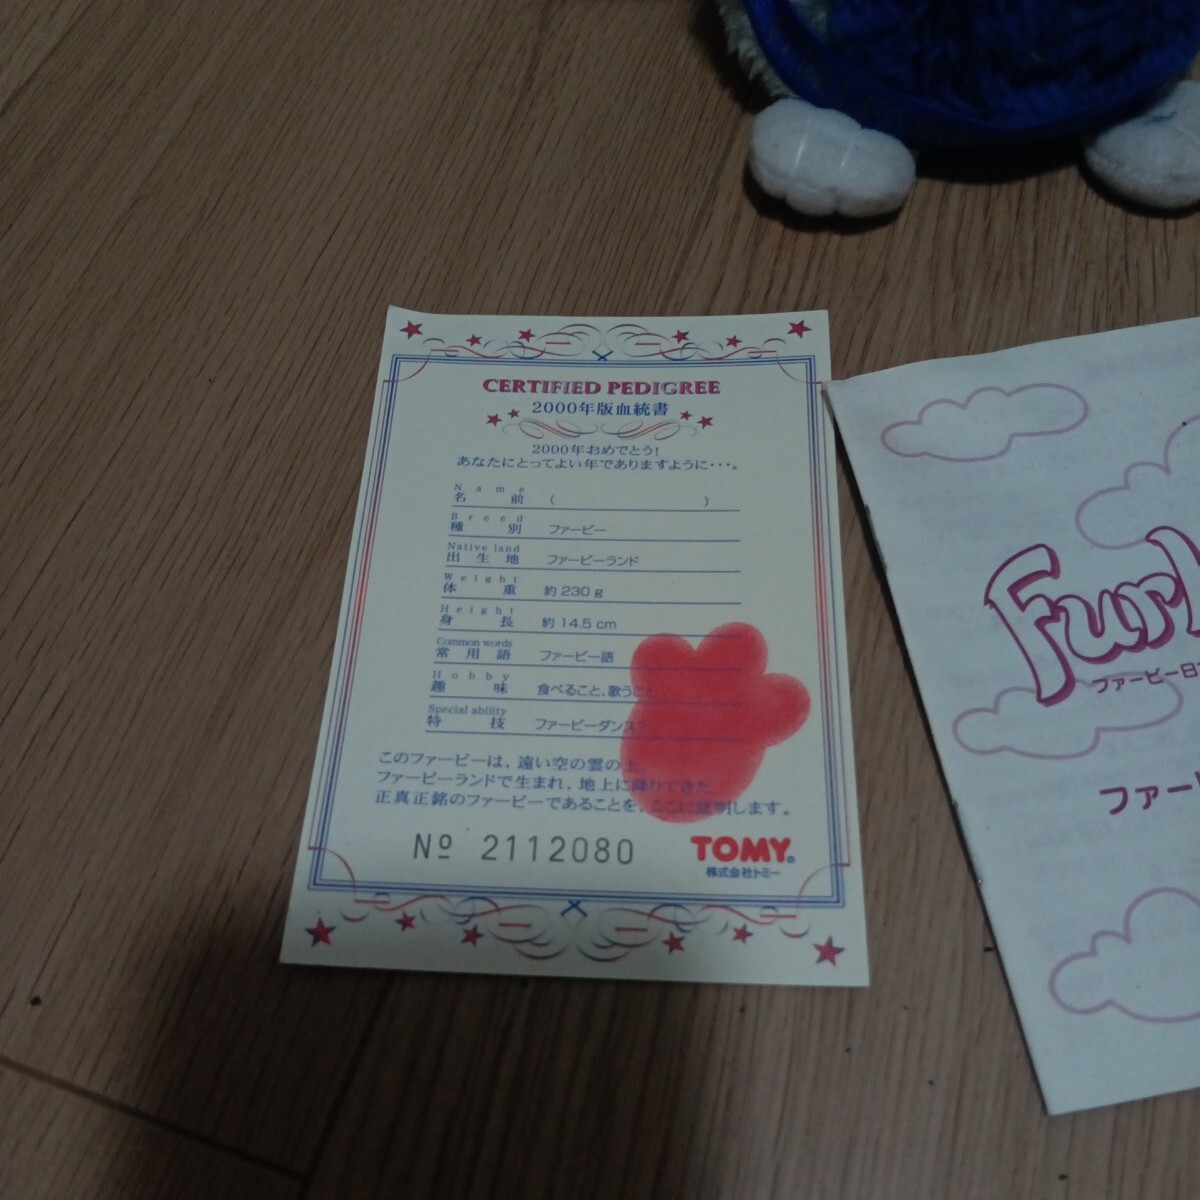 CERTIFIED PEDIGREE
2000年版血統書
2000年おめでとう!
あなたにとってよい年でありますように・・・。
Name
名前 ( )
Breed
種別 ファービー
Native land
出生地 ファービーランド
Weight
体重 約230g
Height
身長 約14.5cm
Common words
常用語 ファービー語
Hobby
趣味 食べること、歌うこと
Special ability
特技 ファービーダンス
このファービーは、遠い空の雲の上
ファービーランドで生まれ、地上に降りてきた
正真正銘のファービーであることを、ここに証明します。
№ 2112080
TOMY®
株式会社トミー
Fur
ファービー日
ファー